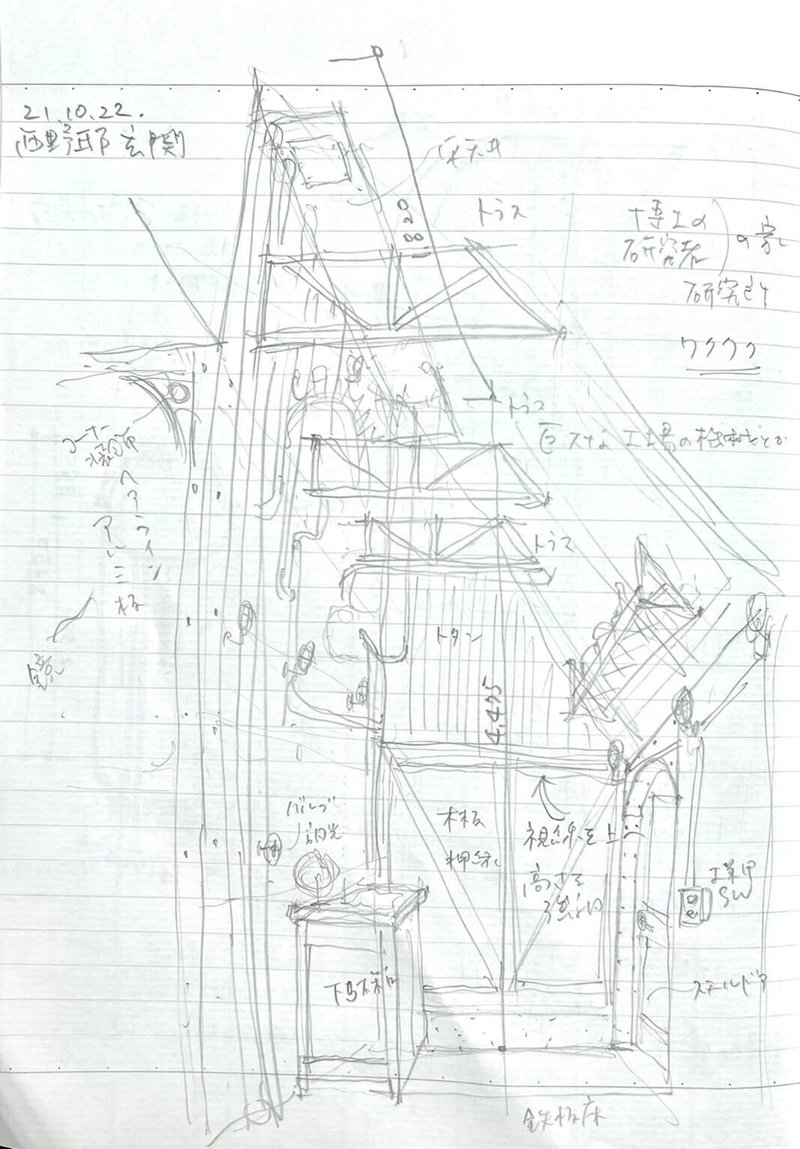 21.10.22.
西野邸玄関
トラス
1820
博士の
研究者
の家
研究所
ワクワク
トラス
巨大な工場の機械とか
コーナー
ヘアライン
アルミ
板
トラス
トタン
4,455
バルブ
調光
木板
押縁
視線を上へ
高さを
強調
工業用
SW
下駄箱
スチールドア
鉄板床